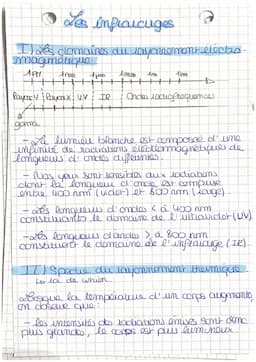 Les infrarouges
I) Les domaines du rayonnement électro-
magnétique
1pm 1nm 1µm 1mm 1m 1km
Rayons γ Rayons X UV IR Ondes radiofréquences
gamma
- La lumière blanche est composée d'une
infinité de radiations électromagnétiques de
longueurs d'ondes différentes.
- Nos yeux sont sensibles aux radiations
dont la longueur d'onde est comprise
entre 400 nm (violet) et 800 nm (rouge)
- Les longueurs d'ondes < à 400 nm
constituent le domaine de l'ultraviolet (UV)
- Les longueurs d'ondes > à 800 nm
constituent le domaine de l'infrarouge (IR)
II) Spectre du rayonnement thermique
La loi de Wien
Lorsque la température d'un corps augmente,
on observe que :
- les intensités des radiations émises sont donc
plus grandes, le corps est plus lumineux.